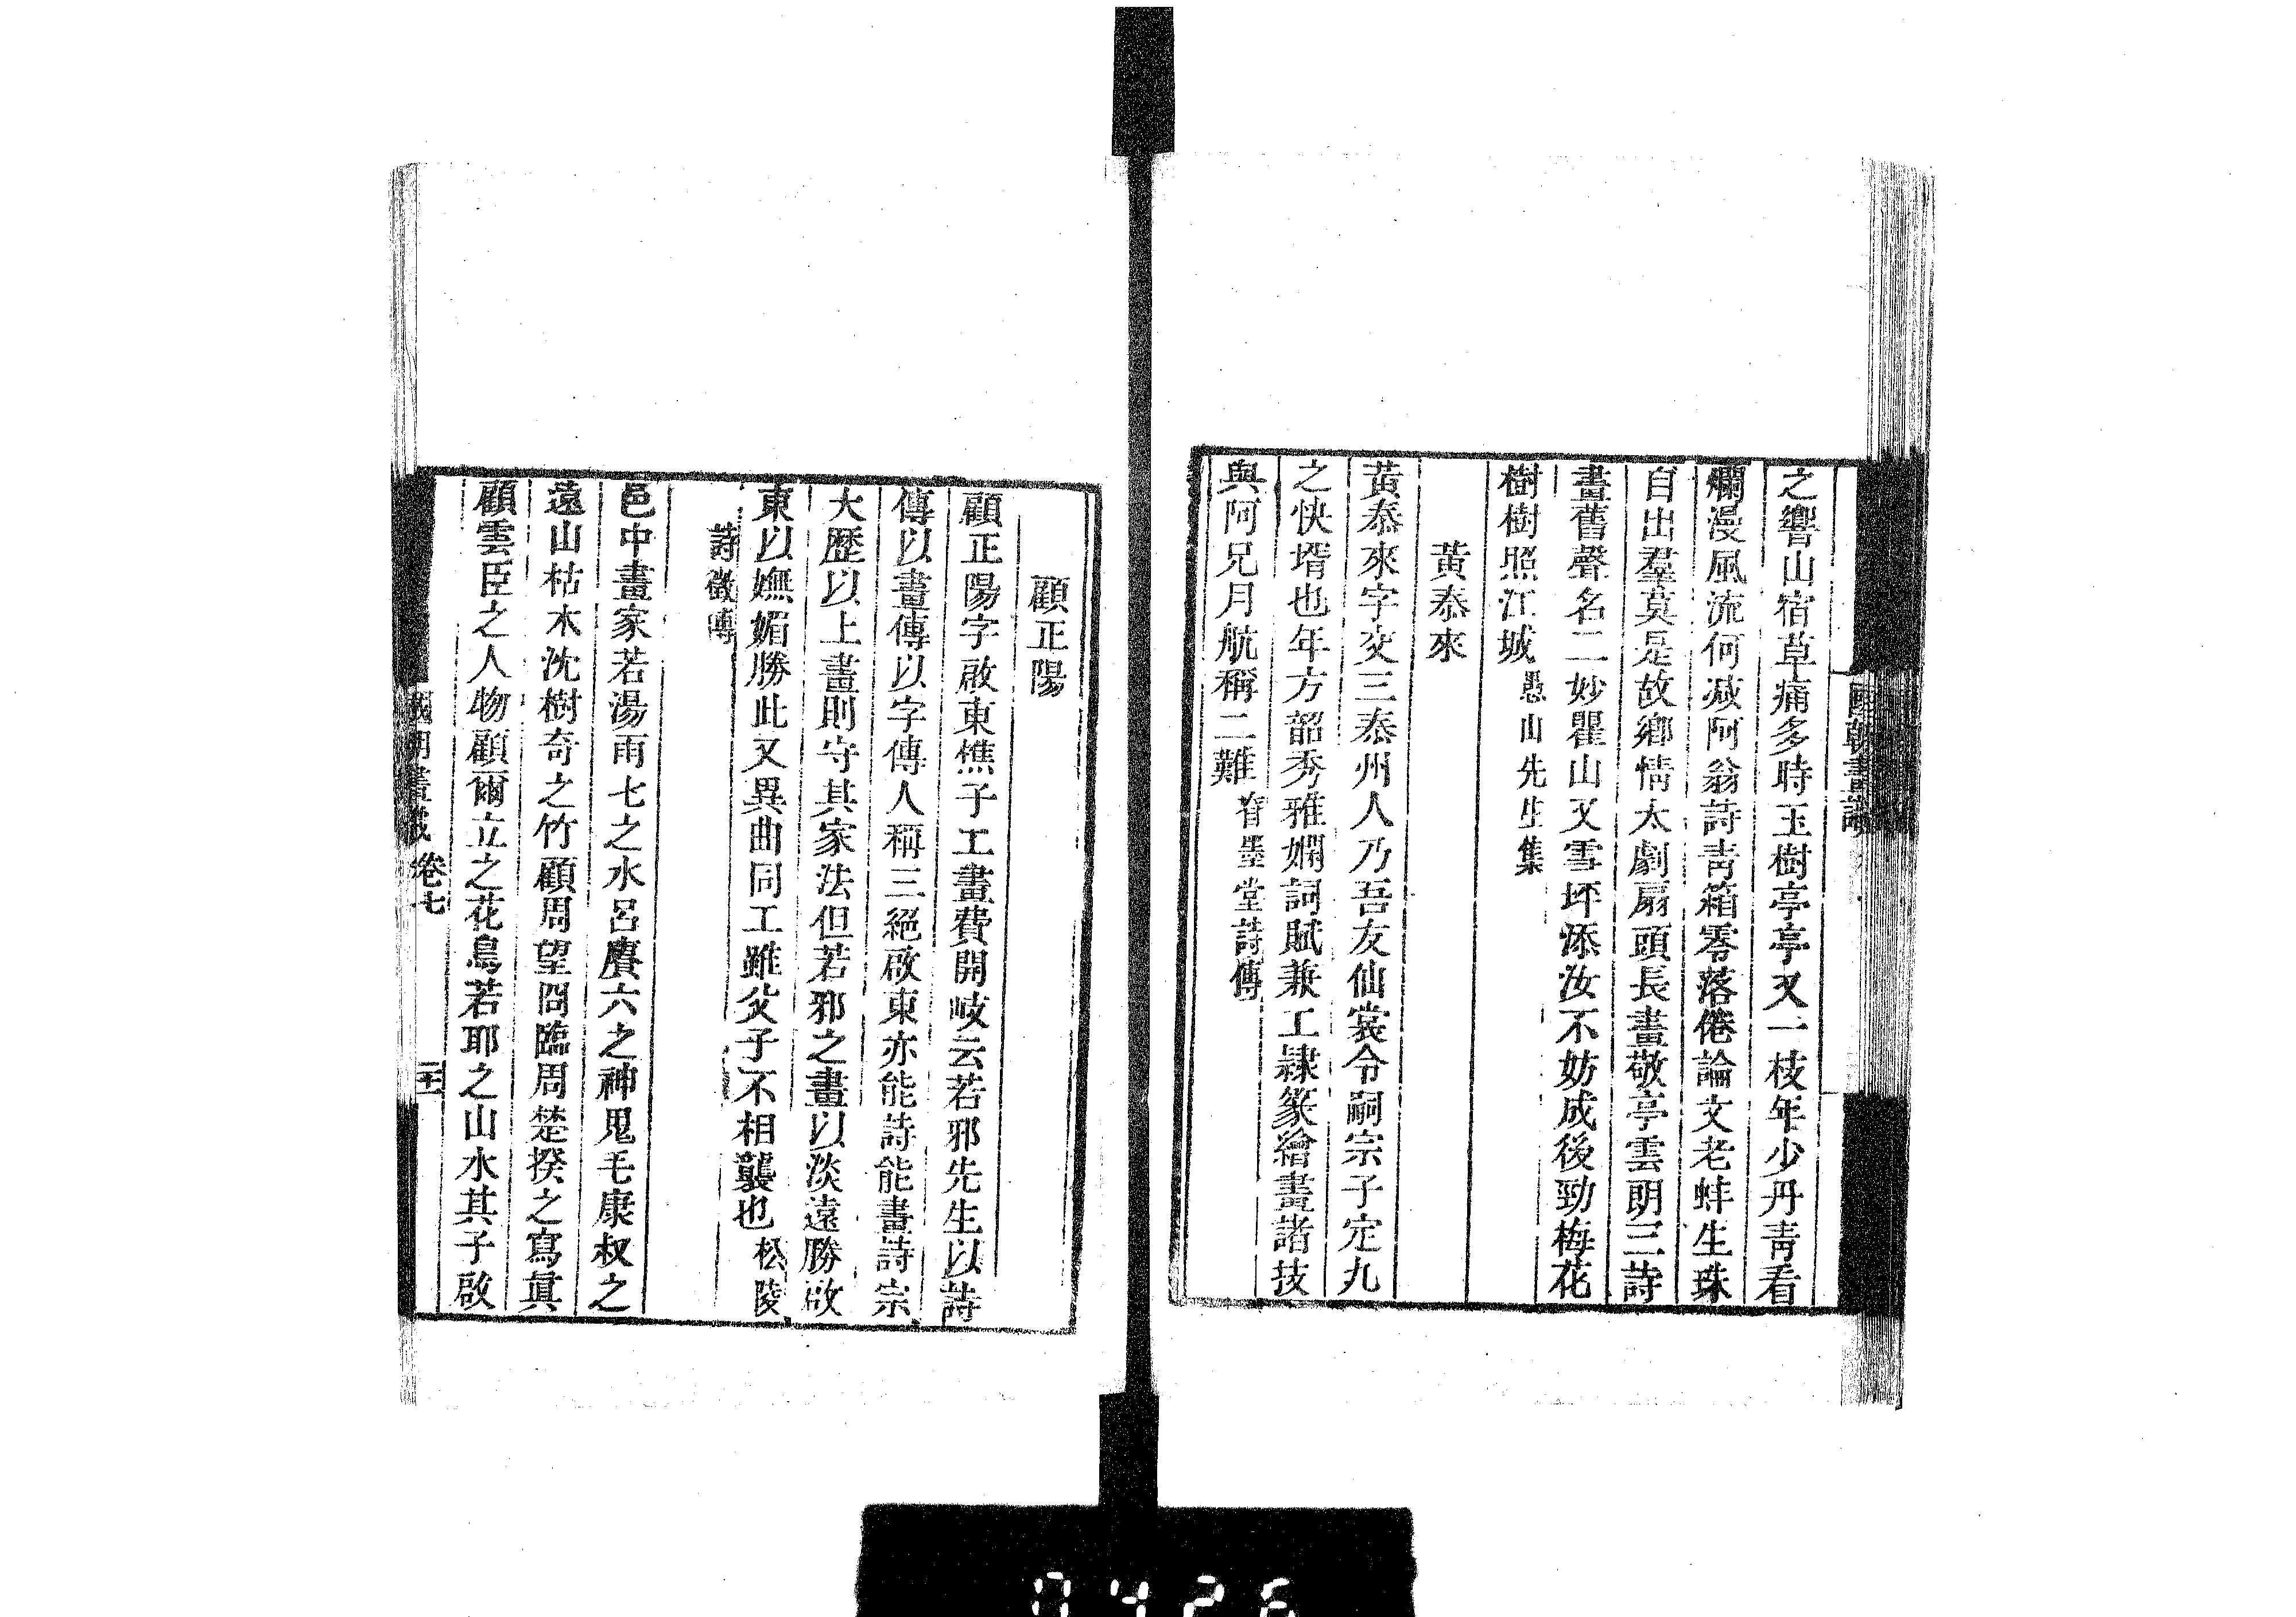 之響山宿草痛多時玉樹亭亭又一枝年少丹青看
爛漫風流何減阿翁詩青箱零落倦論文老蚌生珠
自出羣莫是故鄉情太劇扇頭長畫敬亭雲朗三詩
畫舊聲名二妙瞿山又雪坪添汝不妨成後勁梅花
樹樹照江城愚山先生集
黃泰來
黃泰來字交三泰州人乃吾友仙裳令嗣宗子定九
之快壻也年方韶秀雅嫻詞賦兼工隷篆繪畫諸技
與阿兄月航稱二難眘墨堂詩傳
顧正陽
顧正陽字啟東樵子工畫費開岐云若邪先生以詩
傳以畫傳以字傳人稱三絕啟東亦能詩能畫詩宗
大歷以上畫則守其家法但若邪之畫以淡遠勝啟
東以嫵媚勝此又異曲同工雖父子不相襲也松陵
詩徵傳
邑中畫家若湯雨七之水呂賡六之神鬼毛康叔之
遠山枯木沈樹奇之竹顧周望冏臨周楚揆之寫眞
顧雲臣之人物顧爾立之花鳥若耶之山水其子啟
卷七